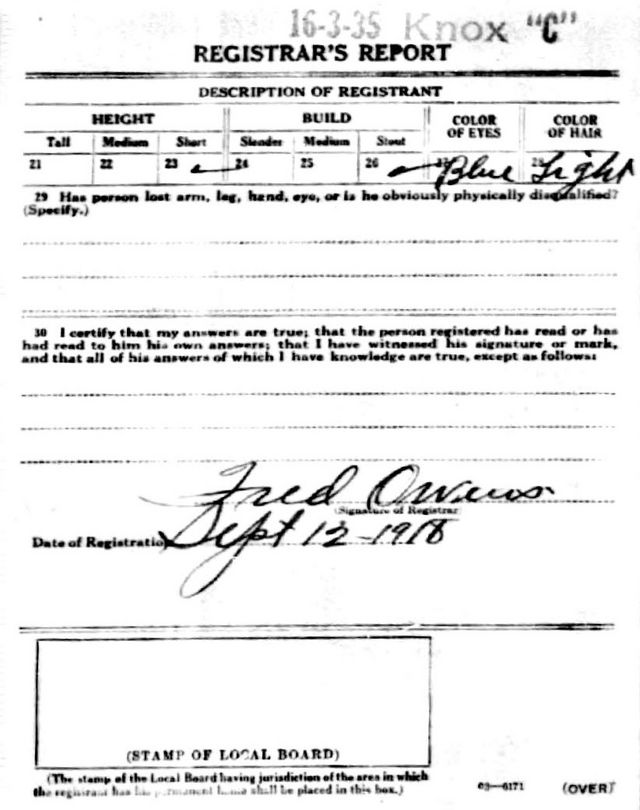 16-3-35 Knox "C"
REGISTRAR'S REPORT
DESCRIPTION OF REGISTRANT
HEIGHT BUILD COLOR OF EYES COLOR OF HAIR
Tall Medium Short Slender Medium Stout
21 22 23 24 25 26 27 Blue 28 Light
29 Has person lost arm, leg, hand, eye, or is he obviously physically disqualified?
(Specify.)
30 I certify that my answers are true; that the person registered has read or has
had read to him his own answers; that I have witnessed his signature or mark,
and that all of his answers of which I have knowledge are true, except as follows:
Fred Owens
(Signature of Registrar)
Date of Registration Sept 12-1918
(STAMP OF LOCAL BOARD)
(The stamp of the Local Board having jurisdiction of the area in which
the registrant has his permanent home shall be placed in this box.)
03—6171 (OVER)